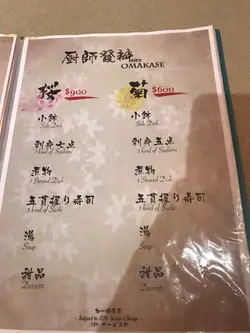 厨師發辦
OMAKASE
桜 $900
小鉢
Side Dish
刺身七点
7 kind of Sashimi
煮物
1 Stewed Dish
五貫握り寿司
5 kind of Sushi
湯
Soup
甜品
Desserts
菊 $600
小鉢
Side Dish
刺身五点
5 kind of Sashimi
煮物
1 Stewed Dish
五貫握り寿司
5 kind of Sushi
湯
Soup
甜品
Desserts
加一服務費
- Subject to 10% Service Charge -